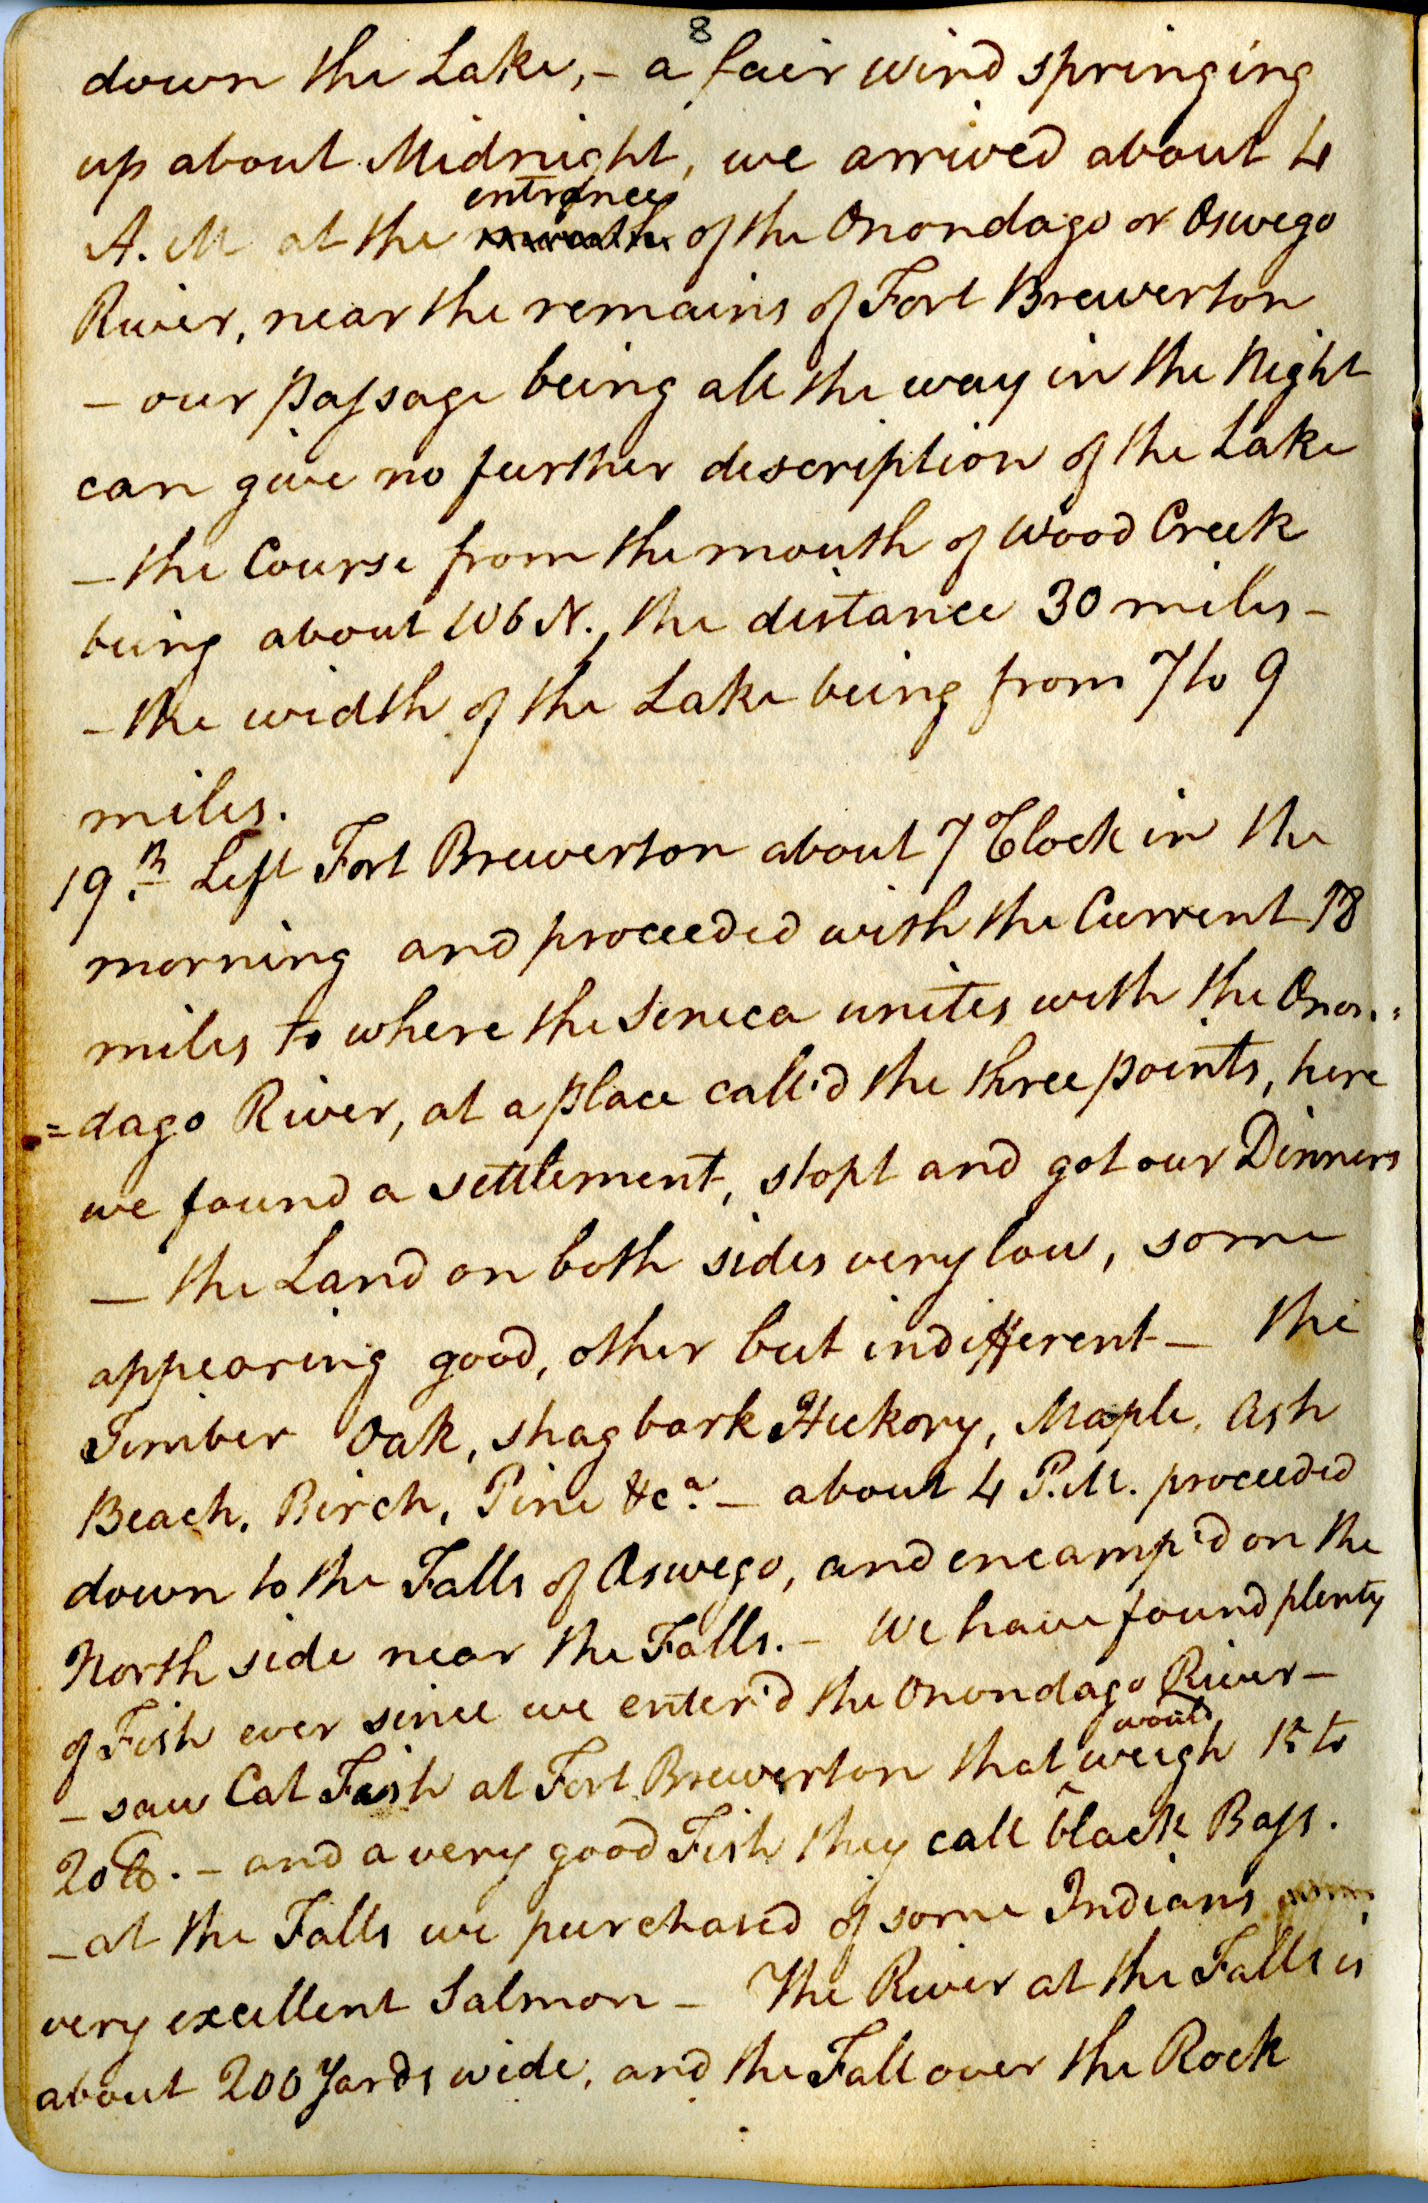 8
down the Lake, – a fair wind springing
up about Midnight, we arrived about 4
entrance
A. M at the of the Onondago or Oswego
River, near the remains of Fort Brewerton
– our passage being all the way in the Night
can give no further description of the Lake
– the Course from the mouth of Wood Creek
being about WbN., the distance 30 miles –
– the width of the Lake being from 7 to 9
miles.
19.th Left Fort Brewerton about 7 Clock in the
morning and proceeded with the Current 18
miles to where the Seneca unites with the Onon=
=dago River, at a place call'd the three points, here
we found a settlement, stopt and got our Dinners
– the Land on both sides very low, some
appearing good, other but indifferent – the
Timber Oak, shagbark Hickory, Maple, Ash
Beach, Birch, Pine &c.a – about 4 P.M. proceeded
down to the Falls of Oswego, and encamp'd on the
North side near the Falls. – We have found plenty
of Fish ever since we enter'd the Onondago River –
would
– saw Cat Fish at Fort Brewerton that weigh to
20 ℔. – and a very good Fish they call black Bass.
– at the Falls we purchased of some Indians
very excellent Salmon – The River at the Falls is
about 200 Yards wide, and the Fall over the Rock